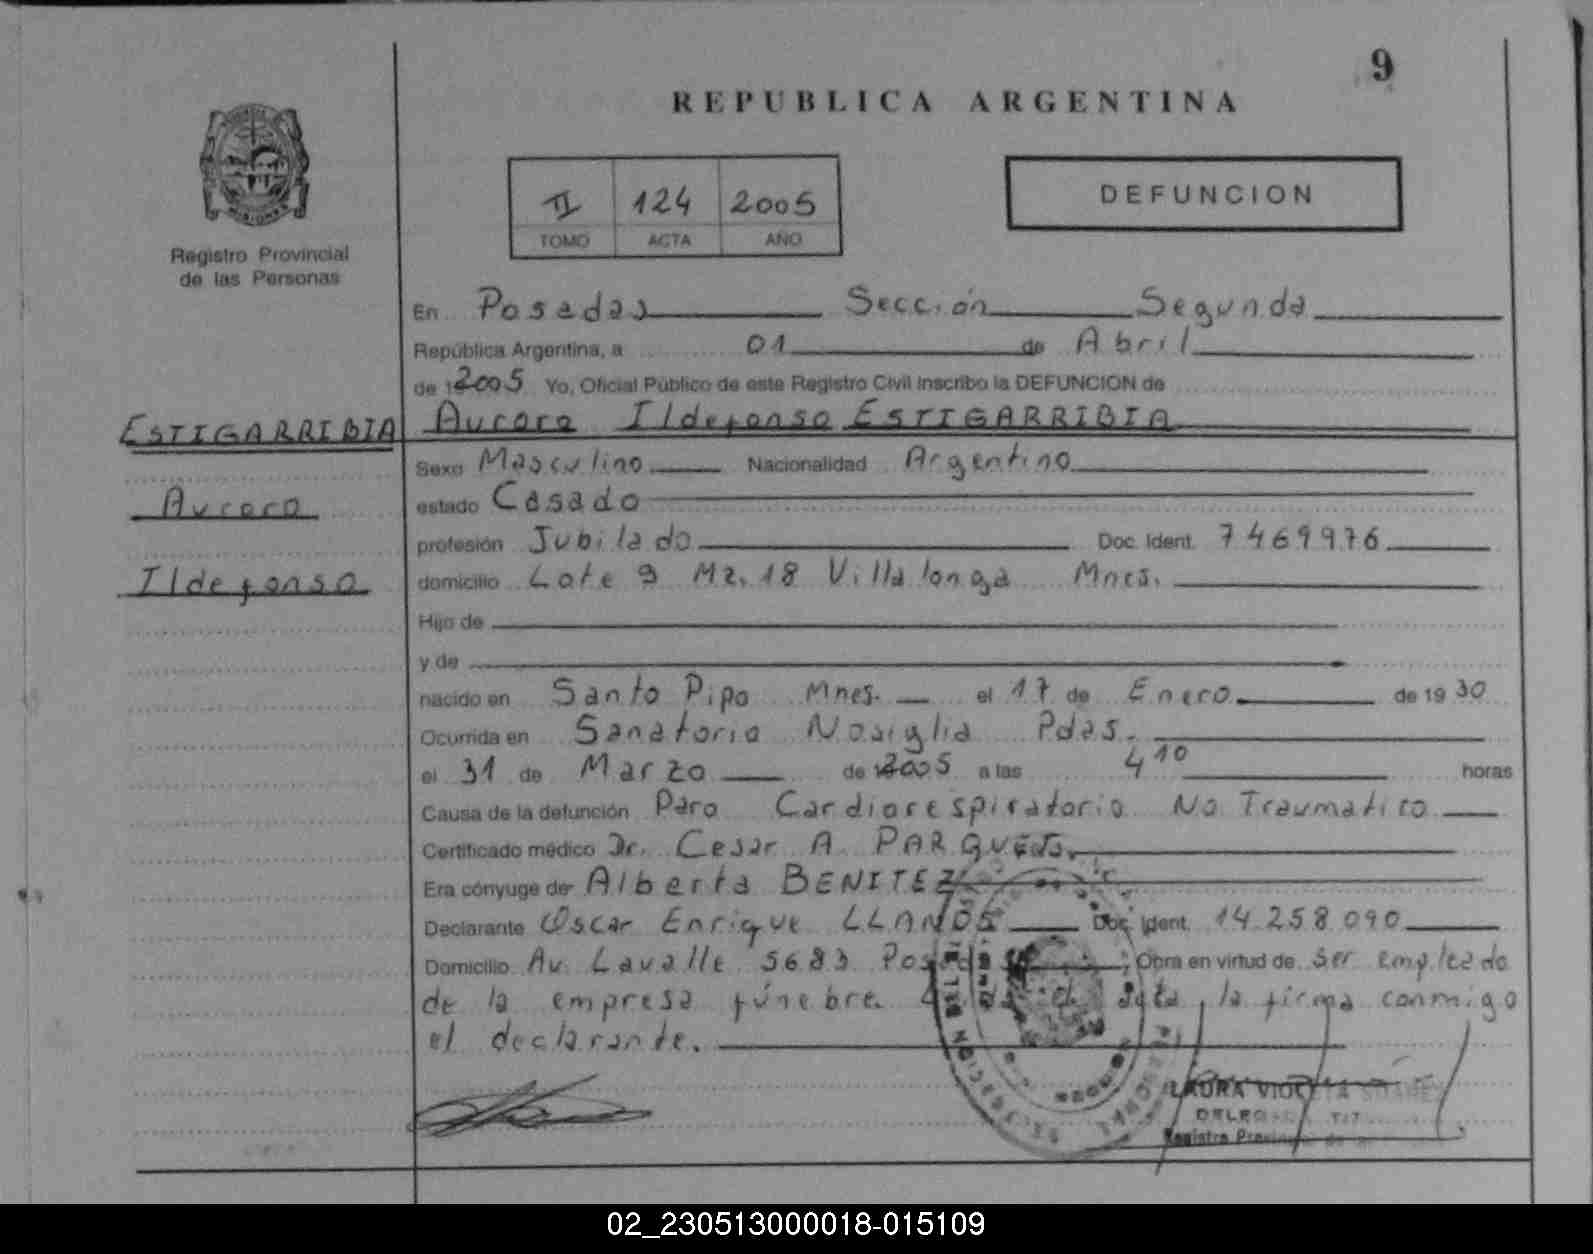 9
REPUBLICA ARGENTINA
MISIONES
Registro Provincial
de las Personas
II 124 2005
TOMO ACTA AÑO
DEFUNCION
En Posadas Sección Segunda
República Argentina, a 01 de Abril
de 2005 Yo, Oficial Público de este Registro Civil inscribo la DEFUNCION de
ESTIGARRIBIA
Aurora
Ildefonso
Aurora Ildefonso ESTIGARRIBIA
Sexo Masculino Nacionalidad Argentino
estado Casado
profesión Jubilado Doc. Ident. 7469976
domicilio Lote 9 Mz. 18 Villa longa Mnes.
Hijo de
y de
nacido en Santo Pipo Mnes. el 17 de Enero de 1930
Ocurrida en Sanatorio Nosiglia Pdas.
el 31 de Marzo de 2005 a las 4 10 horas
Causa de la defunción Paro Cardiorespiratorio No Traumatico
Certificado médico Dr. Cesar A.
Era cónyuge de Alberta BENITEZ
Declarante Oscar Enrique LLANOS Doc. Ident. 14.258.090
Domicilio Av. Lavalle 5683 Obra en virtud de ser empleado
de la empresa fúnebre. acta, la firma conmigo
el declarante.
LAURA VIOLETA
Registro
02_230513000018-015109